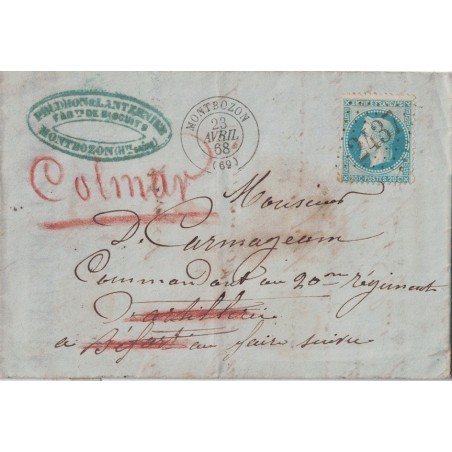 PRUDHON & LANTERNIER
FABts DE BISCUITS
MONTBOZON (Hte Saône)
MONTBOZON
23
AVRIL
68
(69)
EMPIRE FRANÇAIS
20 C POSTES 20 C
Colmar
Monsieur
D. Carmageam
Commandant au 20me régiment
d'artillerie
a Béfort au faire suivre